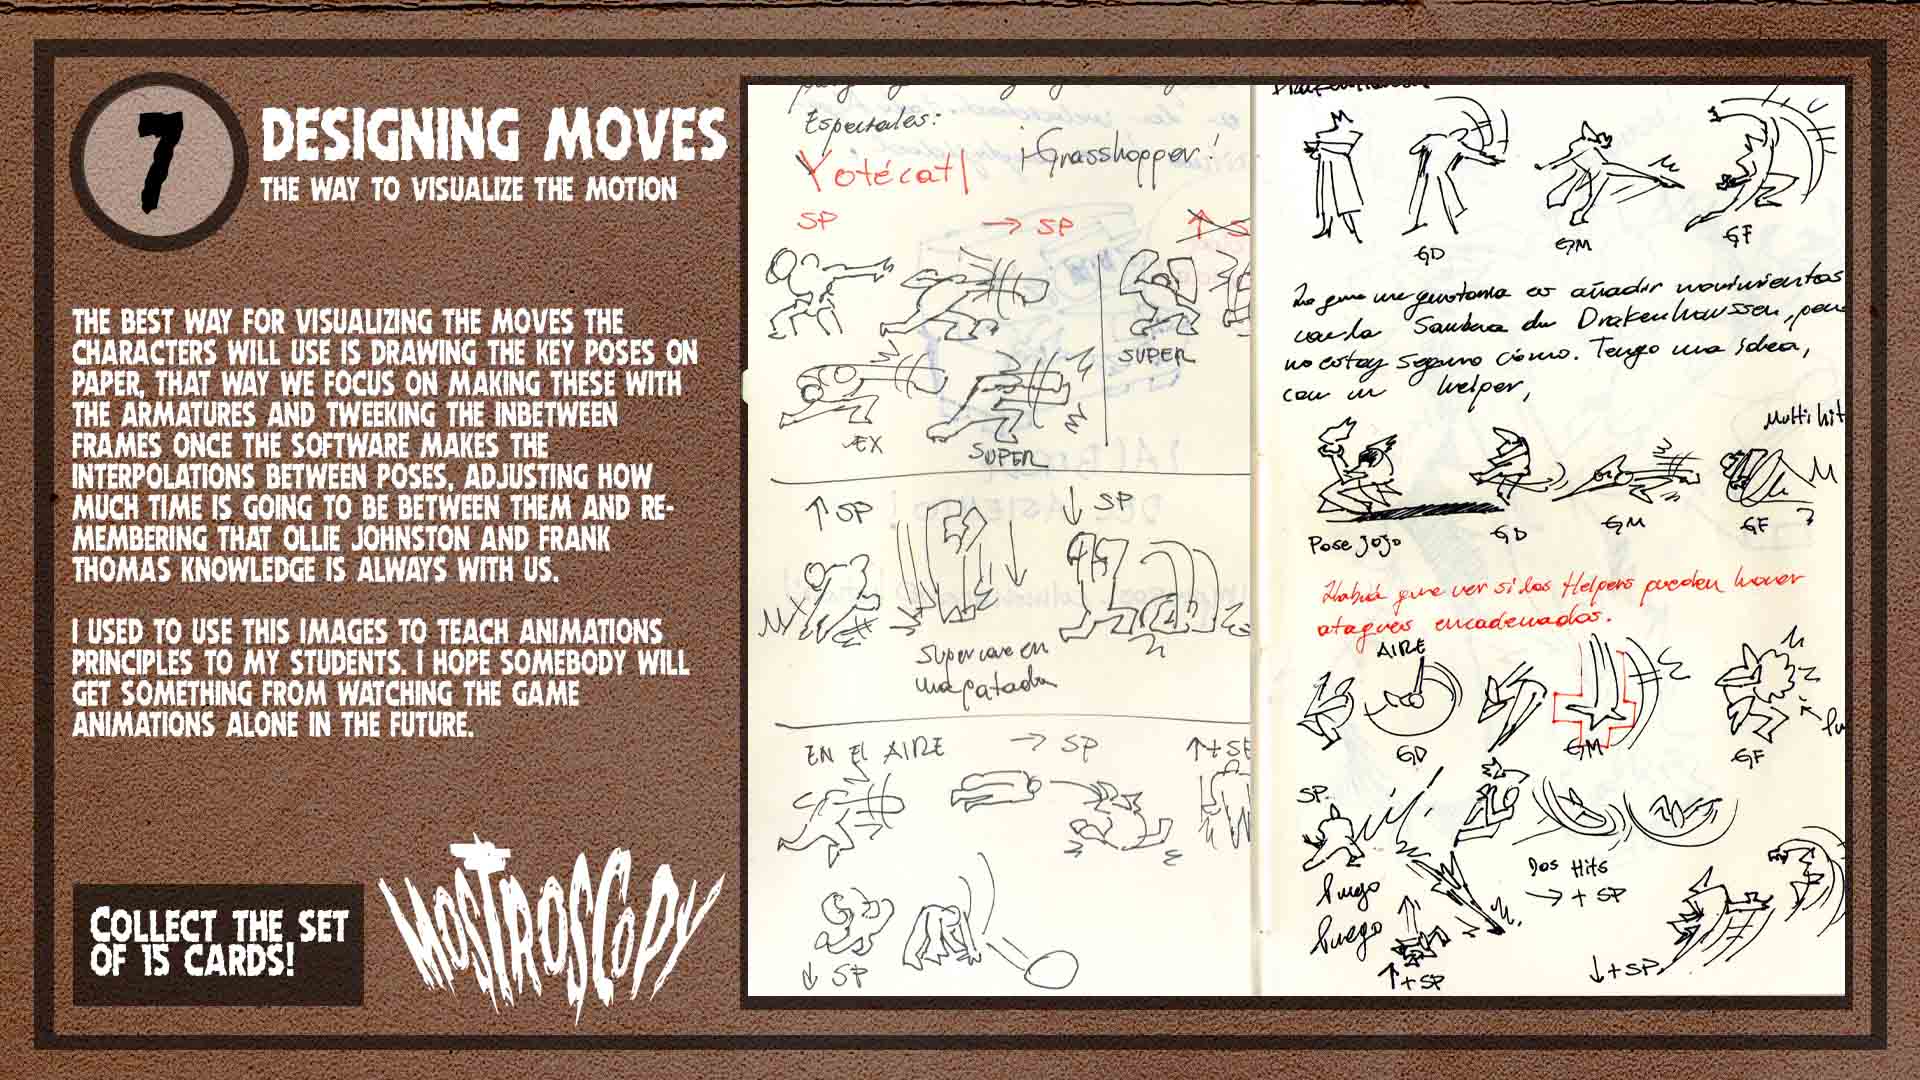 7
DESIGNING MOVES
THE WAY TO VISUALIZE THE MOTION
THE BEST WAY FOR VISUALIZING THE MOVES THE
CHARACTERS WILL USE IS DRAWING THE KEY POSES ON
PAPER, THAT WAY WE FOCUS ON MAKING THESE WITH
THE ARMATURES AND TWEEKING THE INBETWEEN
FRAMES ONCE THE SOFTWARE MAKES THE
INTERPOLATIONS BETWEEN POSES, ADJUSTING HOW
MUCH TIME IS GOING TO BE BETWEEN THEM AND RE-
MEMBERING THAT OLLIE JOHNSTON AND FRANK
THOMAS KNOWLEDGE IS ALWAYS WITH US.
I USED TO USE THIS IMAGES TO TEACH ANIMATIONS
PRINCIPLES TO MY STUDENTS. I HOPE SOMEBODY WILL
GET SOMETHING FROM WATCHING THE GAME
ANIMATIONS ALONE IN THE FUTURE.
COLLECT THE SET
OF 15 CARDS!
MOSTROSCOPY
Especiales:
Yotécatl
¡Grasshopper!
SP
→ SP
EX
SUPER
SUPER
↑ SP
↓ SP
Super
patada
EN EL AIRE
→ SP
↑+SP
↓ SP
GD
GM
GF
Lo que me gustaría es añadir movimientos
con la Sombra de Drakenhaussen, pero
no estoy seguro cómo. Tengo una idea,
con un helper,
Multi hit
Pose JoJo
GD
GM
GF
?
Habrá que ver si los Helpers pueden hacer
ataques encadenados.
AIRE
GD
GM
GF
SP.
Dos Hits
→ + SP
Fuego
Fuego
↑+SP
↓+SP